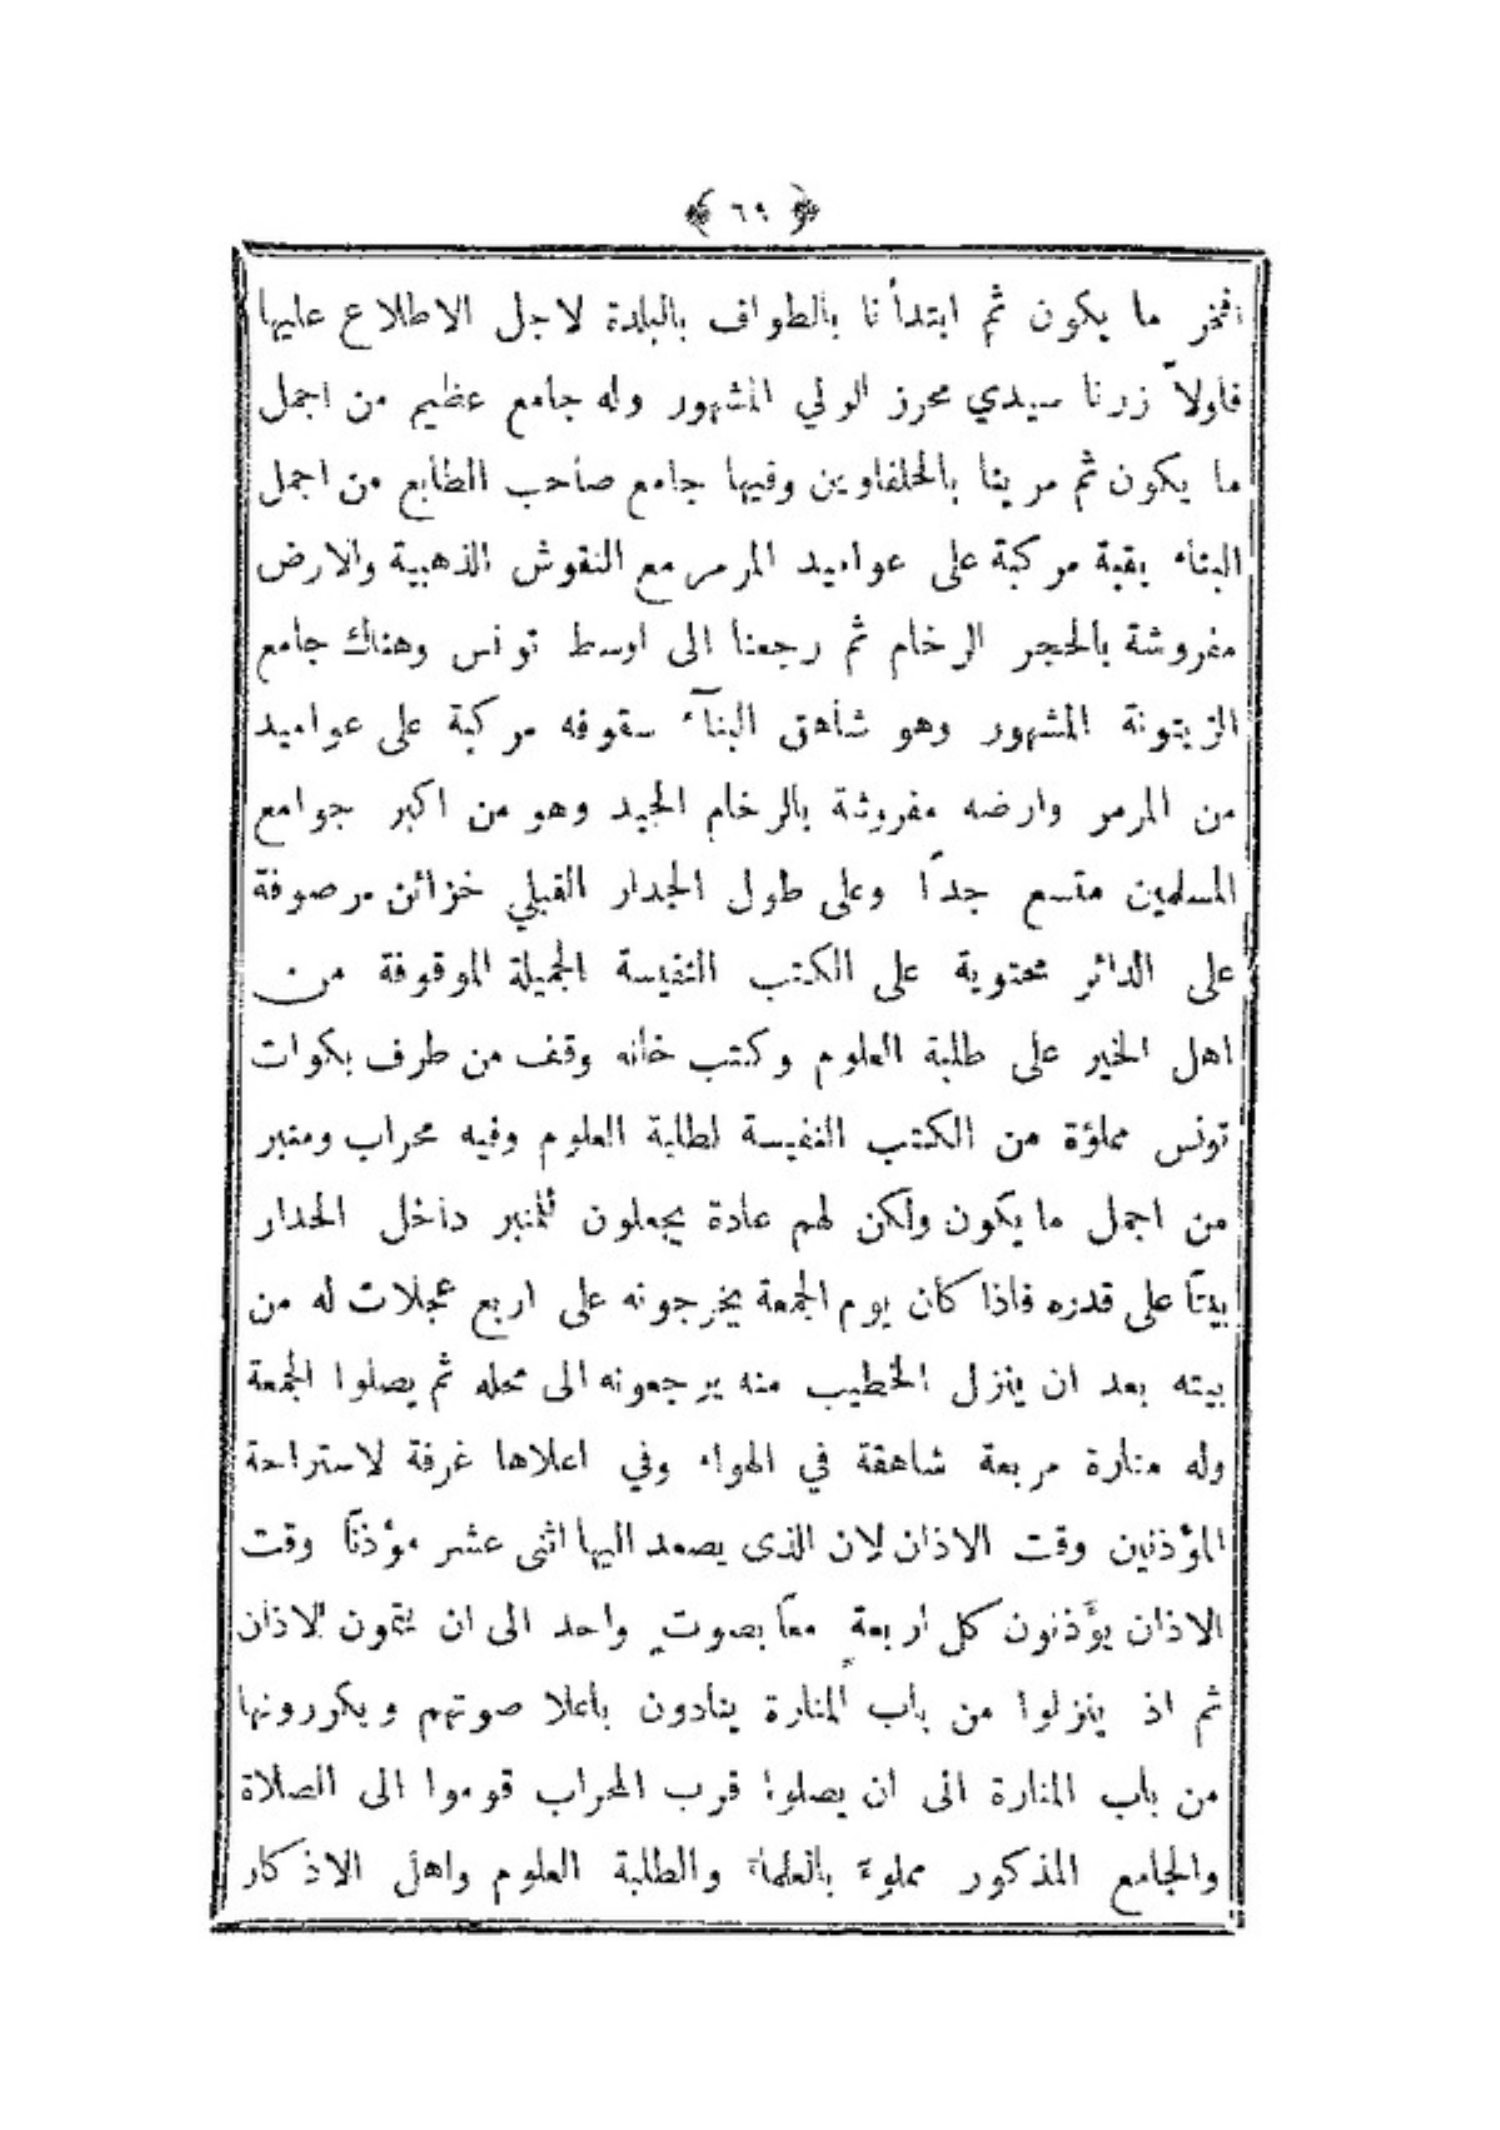 ﴿ ٦٩ ﴾
افخر ما يكون ثم ابتدأنا بالطواف بالبلدة لاجل الاطلاع عليها
فاولاً زرنا سيدي محرز الولي المشهور وله جامع عظيم من اجمل
ما يكون ثم مرينا بالحلفاوين وفيها جامع صاحب الطابع من اجمل
البناء بقبة مركبة على عواميد المرمر مع النقوش الذهبية والارض
مفروشة بالحجر الرخام ثم رجعنا الى اوسط تونس وهناك جامع
الزيتونة المشهور وهو شاهق البنآء سقوفه مركبة على عواميد
من المرمر وارضه مفروشة بالرخام الجيد وهو من اكبر جوامع
المسلمين متسع جداً وعلى طول الجدار القبلي خزائن مرصوفة
على الدائر محتوية على الكتب النفيسة الجميلة الموقوفة من
اهل الخير على طلبة العلوم وكتب خانه وقف من طرف بكوات
تونس مملؤة من الكتب النفيسة لطلبة العلوم وفيه محراب ومنبر
من اجمل ما يكون ولكن لهم عادة يجعلون للمنبر داخل الجدار
بيتاً على قدره فاذا كان يوم الجمعة يخرجونه على اربع عجلات له من
بيته بعد ان ينزل الخطيب منه يرجعونه الى محله ثم يصلوا الجمعة
وله منارة مربعة شاهقة في الهواء وفي اعلاها غرفة لاستراحة
المؤذنين وقت الاذان لان الذى يصعد اليها اثنى عشر مؤذناً وقت
الاذان يؤذنون كل اربعةٍ معاً بصوتٍ واحد الى ان يتمون الاذان
ثم اذ ينزلوا من باب المنارة ينادون باعلا صوتهم ويكررونها
من باب المنارة الى ان يصلوا قرب المحراب قوموا الى الصلاة
والجامع المذكور مملوءة بالعلماء والطلبة العلوم واهل الاذكار